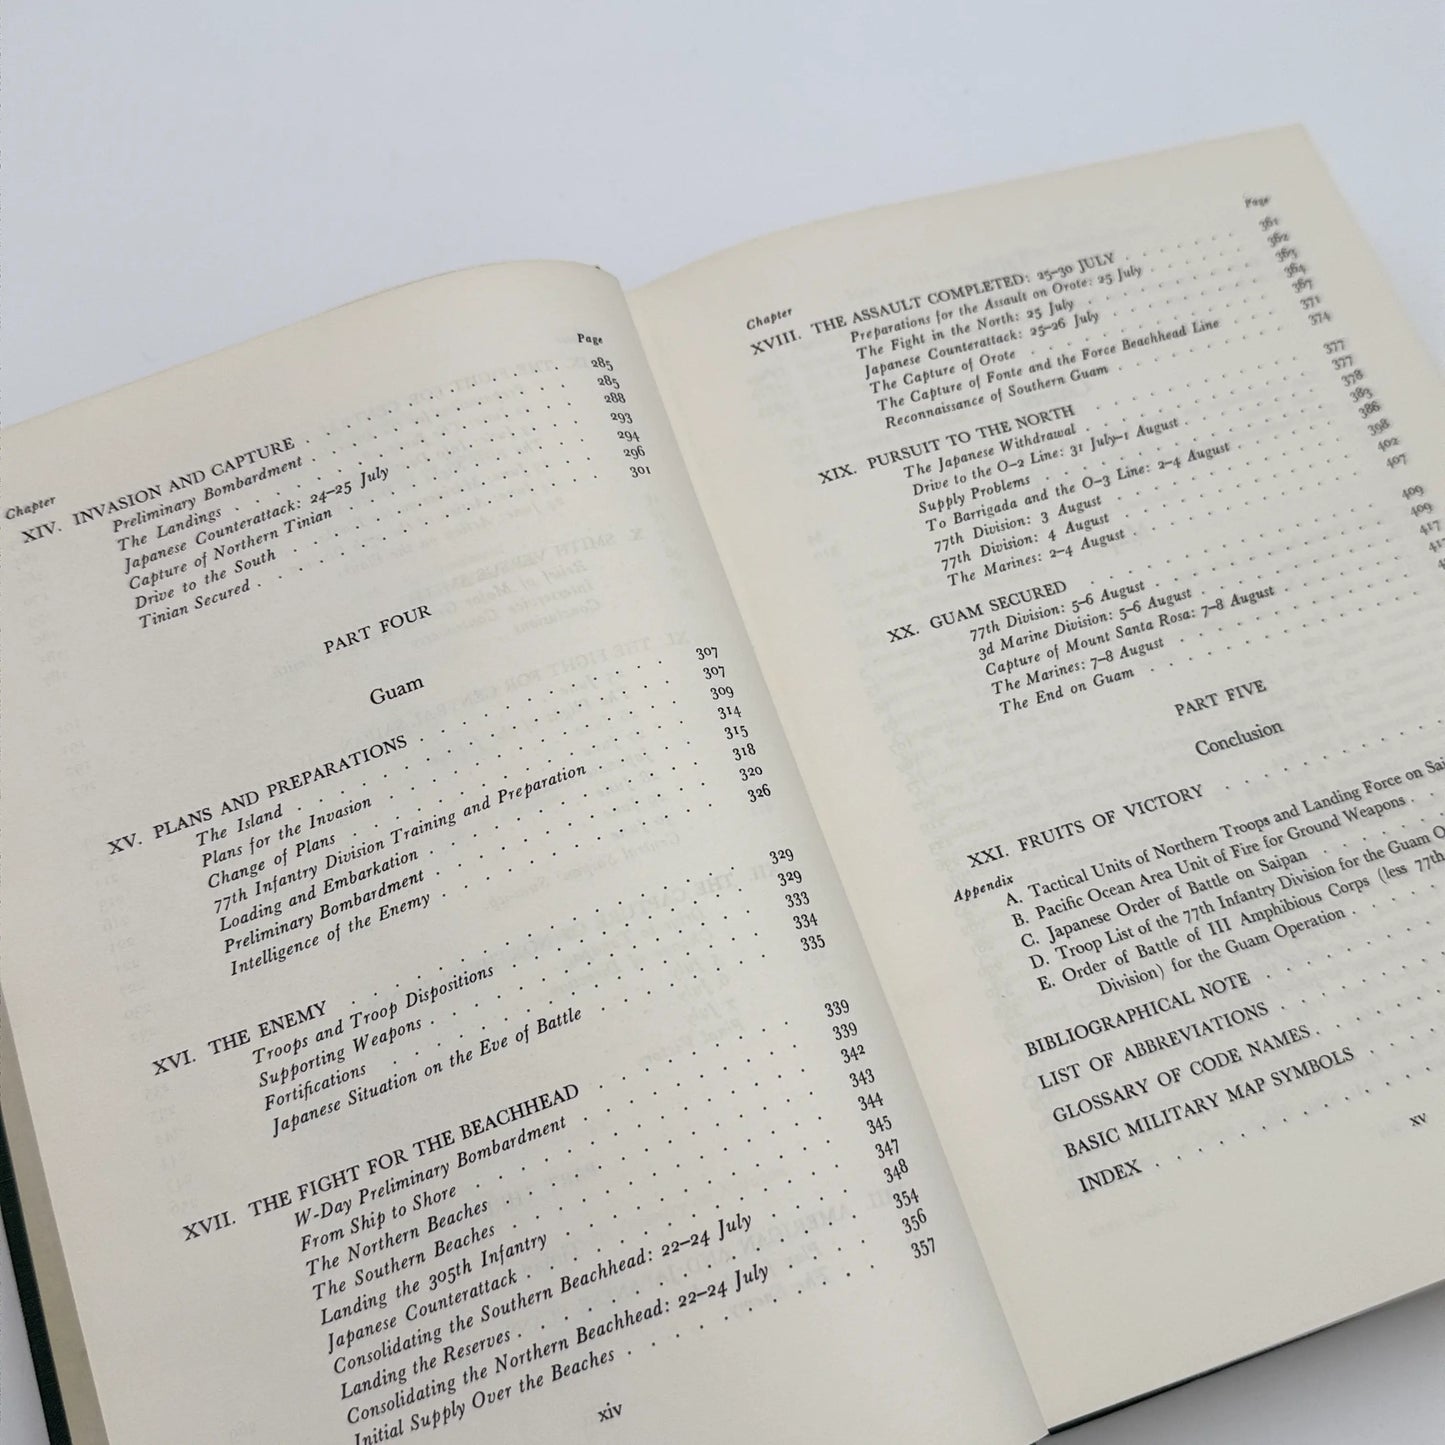 Chapter Page
XIV. INVASION AND CAPTURE . . . 285
Preliminary Bombardment . . . 285
The Landings . . . 288
Japanese Counterattack: 24–25 July . . . 293
Capture of Northern Tinian . . . 294
Drive to the South . . . 296
Tinian Secured . . . 301
PART FOUR
Guam
XV. PLANS AND PREPARATIONS . . . 307
The Island . . . 307
Plans for the Invasion . . . 309
Change of Plans . . . 314
77th Infantry Division Training and Preparation . . . 315
Loading and Embarkation . . . 318
Preliminary Bombardment . . . 320
Intelligence of the Enemy . . . 326
XVI. THE ENEMY . . . 329
Troops and Troop Dispositions . . . 329
Supporting Weapons . . . 333
Fortifications . . . 334
Japanese Situation on the Eve of Battle . . . 335
XVII. THE FIGHT FOR THE BEACHHEAD . . . 339
W-Day Preliminary Bombardment . . . 339
From Ship to Shore . . . 342
The Northern Beaches . . . 343
The Southern Beaches . . . 344
Landing the 305th Infantry . . . 345
Japanese Counterattack . . . 347
Consolidating the Southern Beachhead: 22–24 July . . . 348
Landing the Reserves . . . 354
Consolidating the Northern Beachhead: 22–24 July . . . 356
Initial Supply Over the Beaches . . . 357
xiv
Chapter Page
XVIII. THE ASSAULT COMPLETED: 25–30 JULY . . . 361
Preparations for the Assault on Orote: 25 July . . . 362
The Fight in the North: 25 July . . . 363
Japanese Counterattack: 25–26 July . . . 364
The Capture of Orote . . . 367
The Capture of Fonte and the Force Beachhead Line . . . 371
Reconnaissance of Southern Guam . . . 374
XIX. PURSUIT TO THE NORTH . . . 377
The Japanese Withdrawal . . . 377
Drive to the O–2 Line: 31 July–1 August . . . 378
Supply Problems . . . 383
To Barrigada and the O–3 Line: 2–4 August . . . 386
77th Division: 3 August . . . 398
77th Division: 4 August . . . 402
The Marines: 2–4 August . . . 407
XX. GUAM SECURED . . . 409
77th Division: 5–6 August . . . 409
3d Marine Division: 5–6 August . . . 417
Capture of Mount Santa Rosa: 7–8 August
The Marines: 7–8 August
The End on Guam
PART FIVE
Conclusion
XXI. FRUITS OF VICTORY
Appendix
A. Tactical Units of Northern Troops and Landing Force on Sai
B. Pacific Ocean Area Unit of Fire for Ground Weapons
C. Japanese Order of Battle on Saipan
D. Troop List of the 77th Infantry Division for the Guam O
E. Order of Battle of III Amphibious Corps (less 77th
Division) for the Guam Operation
BIBLIOGRAPHICAL NOTE
LIST OF ABBREVIATIONS
GLOSSARY OF CODE NAMES
BASIC MILITARY MAP SYMBOLS
INDEX
xv